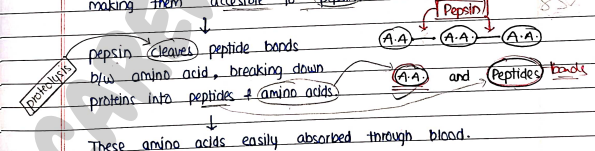 making them accessible to
Pepsin
pepsin cleaves peptide bonds
A.A. A.A. A.A.
proteolysis
b/w amino acid, breaking down
A.A. and Peptides bonds
proteins into peptides & amino acids
These amino acids easily absorbed through blood.